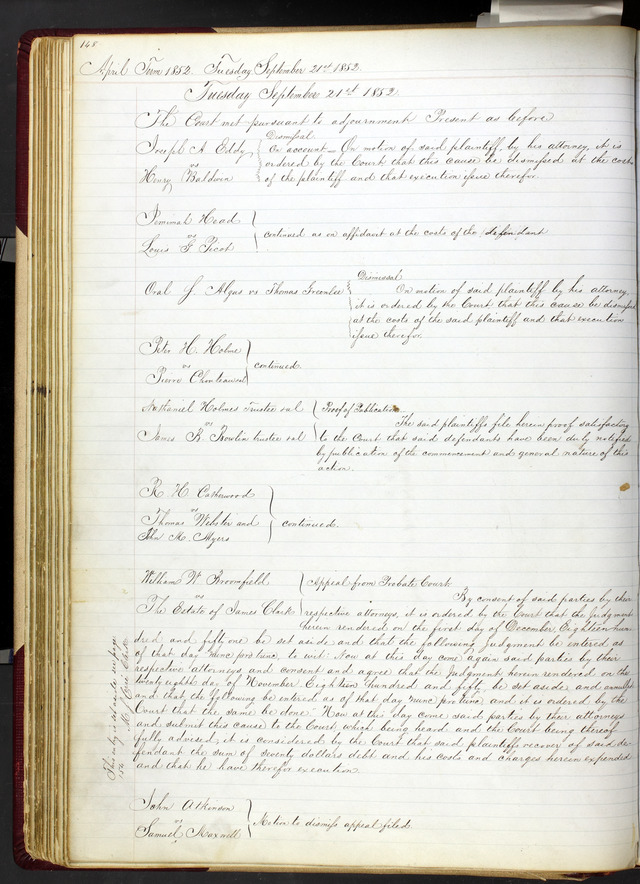 148
April Term 1852. Tuesday September 21st 1852.
Tuesday September 21st 1852
The Court met pursuant to adjournment Present as before
Joseph A. Eddy
vs
Henry Baldwin
Dismissal
On account — On motion of said plaintiff, by his attorney, it is
ordered by the Court that this cause be dismissed at the costs
of the plaintiff and that execution issue therefor.
Head
vs
Louis F. Picot
continued as on affidavit at the costs of the defendant
Oral J. Algus vs Thomas Greenlee
Dismissal
On motion of said plaintiff by his attorney,
it is ordered by the Court that this cause be dismissed
at the costs of the said plaintiff and that execution
issue therefor.
Peter H. Holme
vs
Pierre
continued.
Nathaniel Holmes Trustee &al
vs
James R. Trustee &al
Proof of Publication.
The said plaintiffs file herein proof satisfactory
to the Court that said defendants have been duly notified
by publication of the commencement and general nature of this
action.
R. H. Catherwood
vs
Thomas Webster and
John M. Ayers
continued.
William W. Broomfield
vs
The Estate of James Clark
Appeal from Probate Court
By consent of said parties by their
respective attorneys, it is ordered by the Court that the Judgment
herein rendered on the first day of December, Eighteen hun
dred and fifty one be set aside and that the following Judgment be entered as
of that day nunc pro tunc to wit: Now at this day come again said parties by their
respective attorneys and consent and agree that the judgment herein rendered on the
twenty eighth day of November Eighteen hundred and fifty be set aside and annulled
and that the following be entered as of that day nunc pro tunc and it is ordered by the
Court that the same be done. Now at this day come said parties by their attorneys
and submit this cause to the Court, which being heard and the Court being thereof
fully advised, it is considered by the Court that said plaintiff recover of said de-
fendant the sum of seventy dollars debt and his costs and charges herein expended
and that he have therefor execution
This entry is set aside see page
154
John Atkinson
vs
Samuel Maxwell
Motion to dismiss appeal filed.